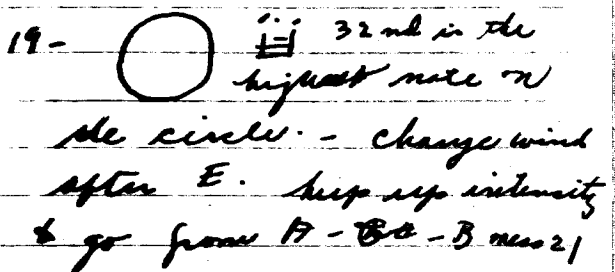 19 - 32nd is the
highest note on
the circle. - change wind
after E. keep up intensity
& go from A - - B meas 21